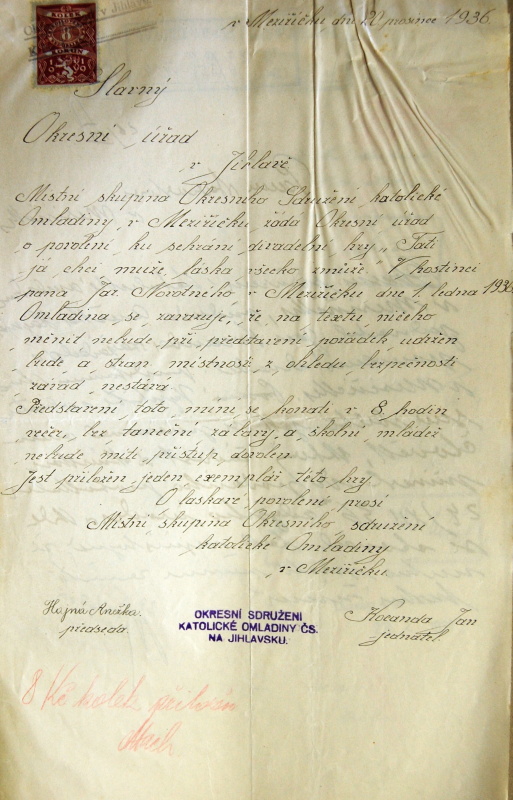 v Meziříčku, dne 20 prosince 1936.
Slavný
Okresní úřad
v Jihlavě
Místní skupina Okresního Sdružení katolické
Omladiny v Meziříčku žádá Okresní úřad
o povolení ku sehrání divadelní hry „Tati
já chci muže, láska všecko zmůže. V hostinci
pana Jar. Novotného v Meziříčku dne 1. ledna 1936
Omladina se zavazuje, že na textu ničeho
měnit nebude při představení pořádek udržen
bude a stran místnosti z ohledu bezpečnosti
závad nestává.
Představení toto míní se konati v 8. hodin
večer, bez taneční zábavy a školní mládež
nebude míti přístup dovolen
Jest přiložen jeden exemplář této hry
O laskavé povolené prosí
Místní skupina Okresního sdružení
katolické Omladiny
v Meziříčku.
Hojná Anežka.
předseda.
OKRESNÍ SDRUŽENI
KATOLICKÉ OMLADINY ČS.
NA JIHLAVSKU.
Kocanda Jan
jednatel.
8 Kč kolek přiložen